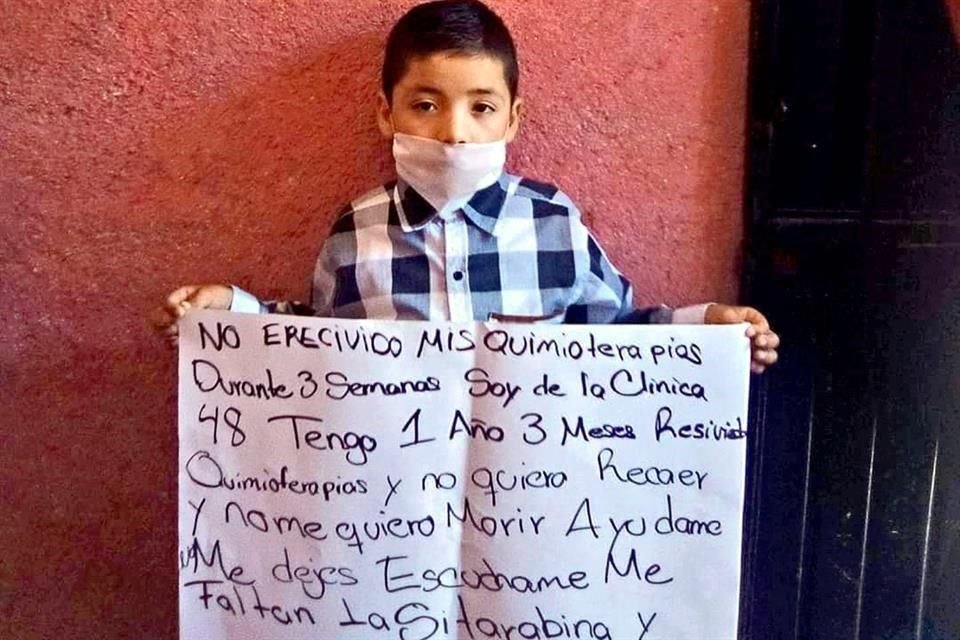 NO ERECIVIDO MIS QUIMIOTERAPIAS
Durante 3 Semanas Soy de la Clinica
48 Tengo 1 Año 3 Meses Resivido
Quimioterapias y no quiero Recaer
Y no me quiero Morir Ayudame
no Me dejes Escuchame Me
Faltan La Sitarabina y